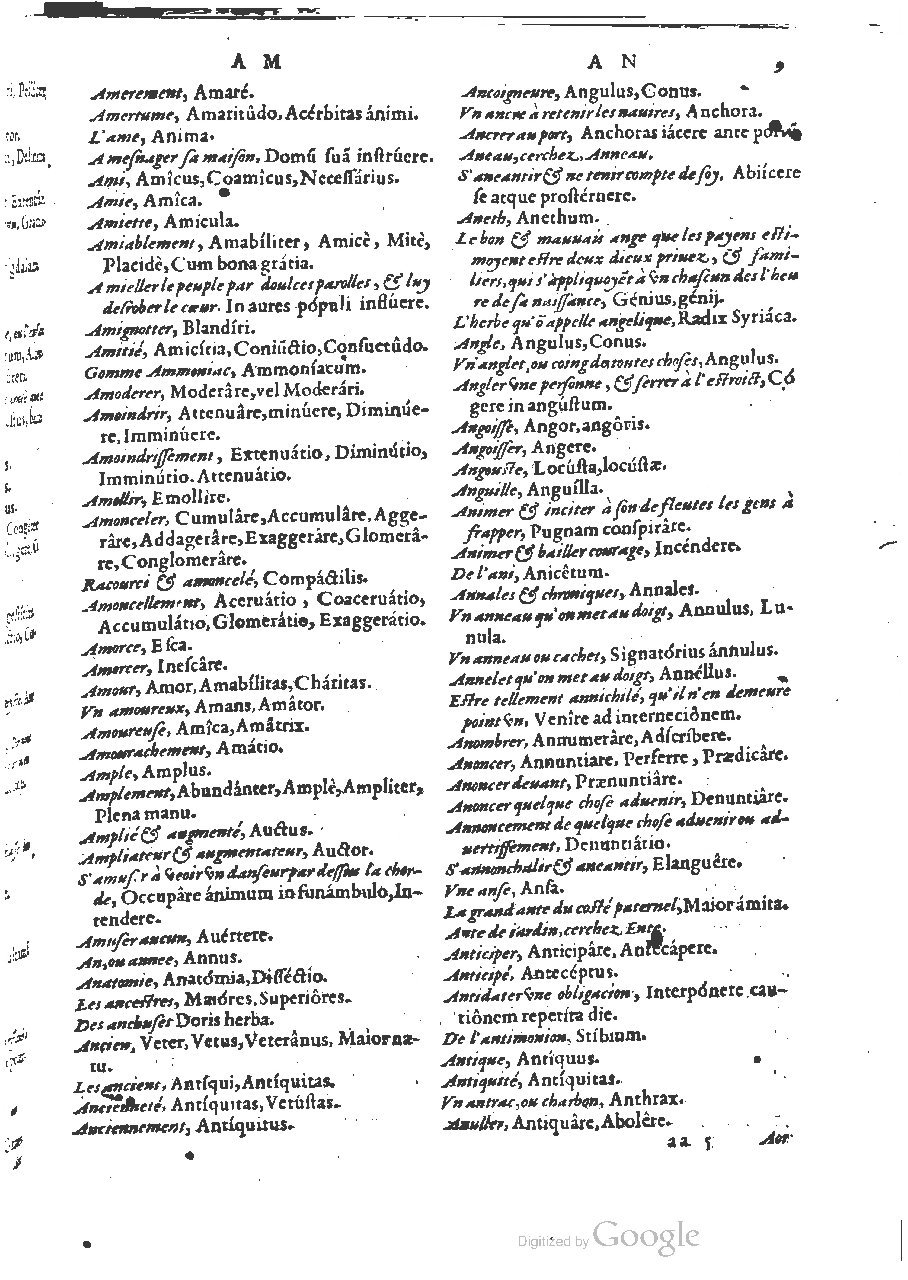 A M
Amerement, Amarè.
Amertume, Amaritûdo, Acérbitas ánimi.
L'ame, Anima.
A mesnager sa maison, Domū suā instrúere.
Ami, Amîcus, Coamicus, Necessárius.
Amie, Amîca.
Amiette, Amicula.
Amiablement, Amabíliter, Amicè, Mitè,
Placidè, Cum bona grátia.
A mieller le peuple par doulces parolles, & luy
desrober le cœur. In aures pópuli influere.
Amignotter, Blandíri.
Amitié, Amicítia, Coniúctio, Consuetûdo.
Gomme Ammoniac, Ammonîacum.
Amoderer, Moderâre, vel Moderári.
Amoindrir, Attenuâre, minúere, Diminúe-
re, Imminúere.
Amoindrissement, Extenuátio, Diminútio,
Imminútio. Attenuátio.
Amollir, Emollire.
Amonceler, Cumulâre, Accumulâre, Agge-
râre, Addagerâre, Exaggerâre, Glomerâ-
re, Conglomerâre.
Racourci & amoncelé, Compáctilis.
Amoncellement, Aceruátio, Coaceruátio,
Accumulátio, Glomerátio, Exaggerátio.
Amorce, Esca.
Amorcer, Inescâre.
Amour, Amor, Amabílitas, Cháritas.
Vn amoureux, Amans, Amâtor.
Amoureuse, Amîca, Amâtrix.
Amourachement, Amátio.
Ample, Amplus.
Amplement, Abundánter, Amplè, Ampliter,
Plena manu.
Amplié & augmenté, Auctus.
Ampliateur & augmentateur, Auctor.
S'amuser à veoir vn danseur par dessus la chor-
de, Occupâre ánimum in funámbulo, In-
tendere.
Amuser aucun, Auértere.
An, ou annee, Annus.
Anatomie, Anatómia, Disséctio.
Les ancestres, Maióres, Superiôres.
Des anchuser Doris herba.
Ancien, Veter, Vetus, Veterânus, Maior na-
tu.
Les anciens, Antíqui, Antíquitas.
Ancienneté, Antíquitas, Vetústas.
Anciennement, Antíquitus.
A N 9
Ancoigneure, Angulus, Conus.
Vn ancre à retenir les nauires, Anchora.
Ancrer au port, Anchoras iácere ante
Aneau, cerchez, Anneau.
S'aneantir & ne tenir compte de soy, Abiicere
se atque prostérnere.
Aneth, Anethum.
Le bon & mauuais ange que les payens esti-
moyent estre deux dieux priuez, & fami-
liers, qui s'àppliquoyēt à vn chascun des l'heu
re de sa naissance, Génius, génij.
L'herbe qu'ō appelle angelique, Radix Syriáca.
Angle, Angulus, Conus.
Vn anglet, ou coing de toutes choses, Angulus.
Angler vne personne, & serrer à l'estroict, Có
gere in angústum.
Angoisse, Angor, angôris.
Angoisser, Angere.
Angouste, Locústa, locústæ.
Anguille, Anguílla.
Animer & inciter à son de fleutes les gens à
frapper, Pugnam conspirâre.
Animer & bailler courage, Incéndere.
De l'ani, Anicêtum.
Annales & chroniques, Annales.
Vn anneau qu'on met au doigt, Annulus, Lu-
nula.
Vn anneau ou cachet, Signatórius ánnulus.
Annelet qu'on met au doigt, Annéllus.
Estre tellement annichilé, qu'il n'en demeure
point vn, Venîre ad interneciônem.
Anombrer, Annumerâre, Adscríbere.
Anoncer, Annuntiare, Perferre, Prædicâre.
Anoncer deuant, Prænuntiâre.
Anoncer quelque chose aduenir, Denuntiâre.
Annoncement de quelque chose aduenir ou ad-
uertissement, Denuntiátio.
S'annonchalir & aneantir, Elanguêre.
Vne anse, Ansa.
La grand ante du costé paternel, Maior ámita.
Ante de iardin, cerchez, Ente.
Anticiper, Anticipâre, Antecápere.
Anticipé, Antecéptus.
Antidater vne obligacion, Interpónere cau-
tiônem repetíta die.
De l'antimonion, Stíbium.
Antique, Antiquus.
Antiquité, Antíquitas.
Vn antrac, ou charbon, Anthrax.
Anuller, Antiquâre, Abolêre.
aa 5
Digitized by Google